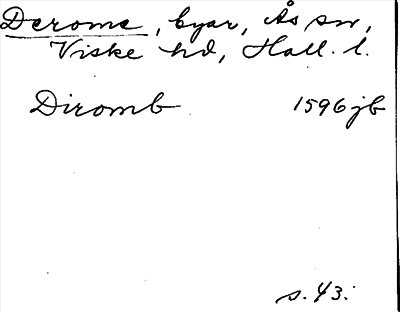 Derome, byar, Ås sn,
Viske hd, Hall. l.
Diromb 1596 jb
s. 43.